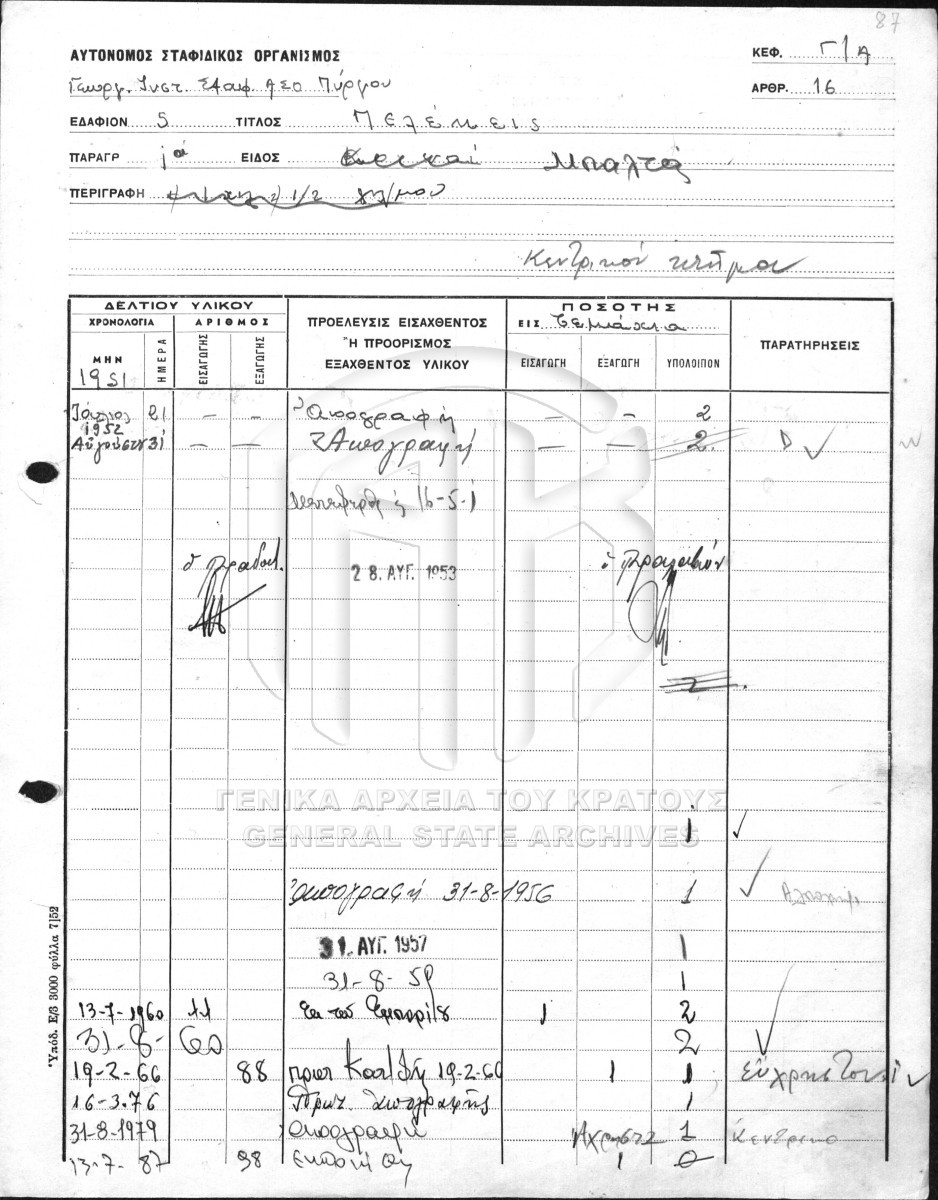 87
ΑΥΤΟΝΟΜΟΣ ΣΤΑΦΙΔΙΚΟΣ ΟΡΓΑΝΙΣΜΟΣ
ΚΕΦ. Γ/Α
Γεωργ. Ινστ. Σταφ. ΑΣΟ Πύργου
ΑΡΘΡ. 16
ΕΔΑΦΙΟΝ 5 ΤΙΤΛΟΣ Πελέκεις
ΠΑΡΑΓΡ ΕΙΔΟΣ Μπαλτά
ΠΕΡΙΓΡΑΦΗ 1/2
Κεντρικόν κτήμα
ΔΕΛΤΙΟΥ ΥΛΙΚΟΥ
ΠΟΣΟΤΗΣ
ΧΡΟΝΟΛΟΓΙΑ ΑΡΙΘΜΟΣ
ΠΡΟΕΛΕΥΣΙΣ ΕΙΣΑΧΘΕΝΤΟΣ
Ή ΠΡΟΟΡΙΣΜΟΣ
ΕΞΑΧΘΕΝΤΟΣ ΥΛΙΚΟΥ
ΕΙΣ τεμάχια
ΠΑΡΑΤΗΡΗΣΕΙΣ
ΜΗΝ ΗΜΕΡΑ ΕΙΣΑΓΩΓΗΣ ΕΞΑΓΩΓΗΣ
ΕΙΣΑΓΩΓΗ ΕΞΑΓΩΓΗ ΥΠΟΛΟΙΠΟΝ
1951
21 — — Απογραφή — — 2
1952
Αύγουστος 31 — — Απογραφή — — 2.
16-5-
ο παραδούς
28. ΑΥΓ. 1953
ο παραλαβών
2
ΓΕΝΙΚΑ ΑΡΧΕΙΑ ΤΟΥ ΚΡΑΤΟΥΣ
GENERAL STATE ARCHIVES
1
Απογραφή 31-8-1956 1
31. ΑΥΓ. 1957 1
31-8-59 1
13-7-1960 11 Εκ του 1 2
31-8-60 2
19-2-66 88 πρωτ 19-2-66 1 1 εύχρηστον 1
16-3-76 Πρωτ. απογραφής 1
31-8-1979 απογραφή Άχρηστα 1 Κεντρικό
13-7-87 98 1 0
Υπόδ. Ε/3 3000 φύλλα 7|52